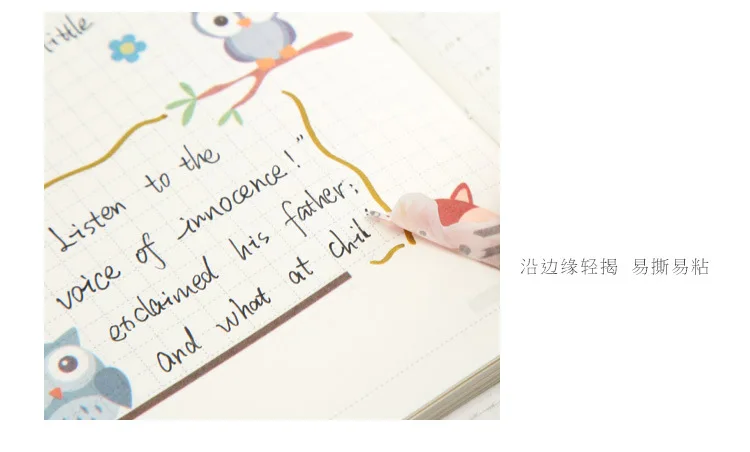 little
Listen to the
voice of innocence!"
exclaimed his father;
and what at chil
沿边缘轻揭 易撕易粘